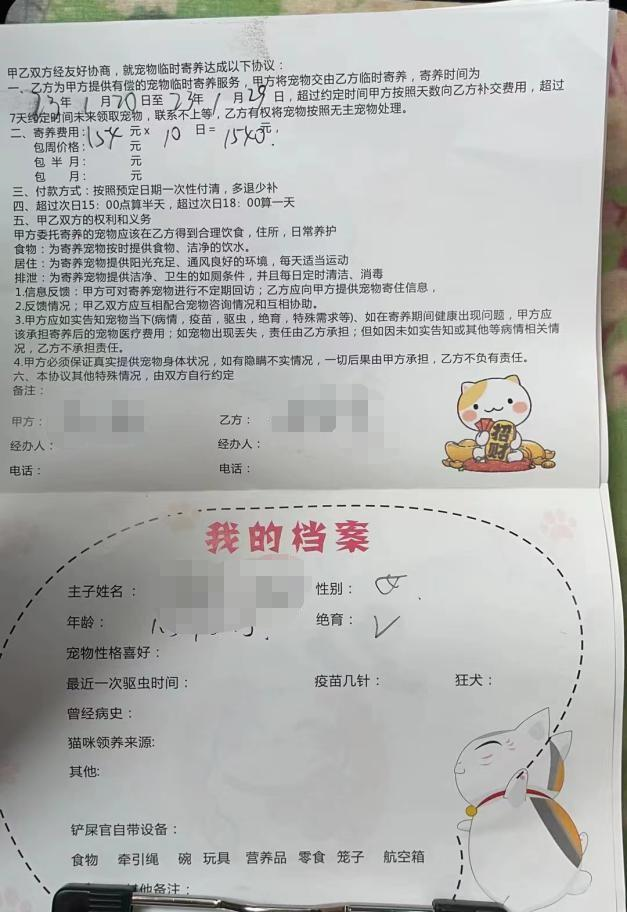 甲乙双方经友好协商，就宠物临时寄养达成以下协议：
一、乙方为甲方提供有偿的宠物临时寄养服务，甲方将宠物交由乙方临时寄养，寄养时间为
23年 1 月20日至 23年 1 月 29 日，超过约定时间甲方按照天数向乙方补交费用，超过
7天约定时间未来领取宠物，联系不上等，乙方有权将宠物按照无主宠物处理。
二、寄养费用：154 元 x 10 日= 1540元，
包周价格： 元
包 半 月： 元
包 月： 元
三、付款方式：按照预定日期一次性付清，多退少补
四、超过次日15：00点算半天，超过次日18：00算一天
五、甲乙双方的权利和义务
甲方委托寄养的宠物应该在乙方得到合理饮食，住所，日常养护
食物：为寄养宠物按时提供食物、洁净的饮水。
居住：为寄养宠物提供阳光充足、通风良好的环境，每天适当运动
排泄：为寄养宠物提供洁净、卫生的如厕条件，并且每日定时清洁、消毒
1.信息反馈：甲方可对寄养宠物进行不定期回访；乙方应向甲方提供宠物寄住信息，
2.反馈情况；甲乙双方应互相配合宠物咨询情况和互相协助。
3.甲方应如实告知宠物当下(病情，疫苗，驱虫，绝育，特殊需求等)、如在寄养期间健康出现问题，甲方应
该承担寄养后的宠物医疗费用；如宠物出现丢失，责任由乙方承担；但如因未如实告知或其他等病情相关情
况，乙方不承担责任。
4.甲方必须保证真实提供宠物身体状况，如有隐瞒不实情况，一切后果由甲方承担，乙方不负有责任。
六、本协议其他特殊情况，由双方自行约定
备注：
甲方： 乙方：
经办人： 经办人：
电话： 电话：
招财
我的档案
主子姓名： 性别：
年龄： 绝育：√
宠物性格喜好：
最近一次驱虫时间： 疫苗几针： 狂犬：
曾经病史：
猫咪领养来源:
其他:
铲屎官自带设备：
食物 牵引绳 碗 玩具 营养品 零食 笼子 航空箱
其他备注：